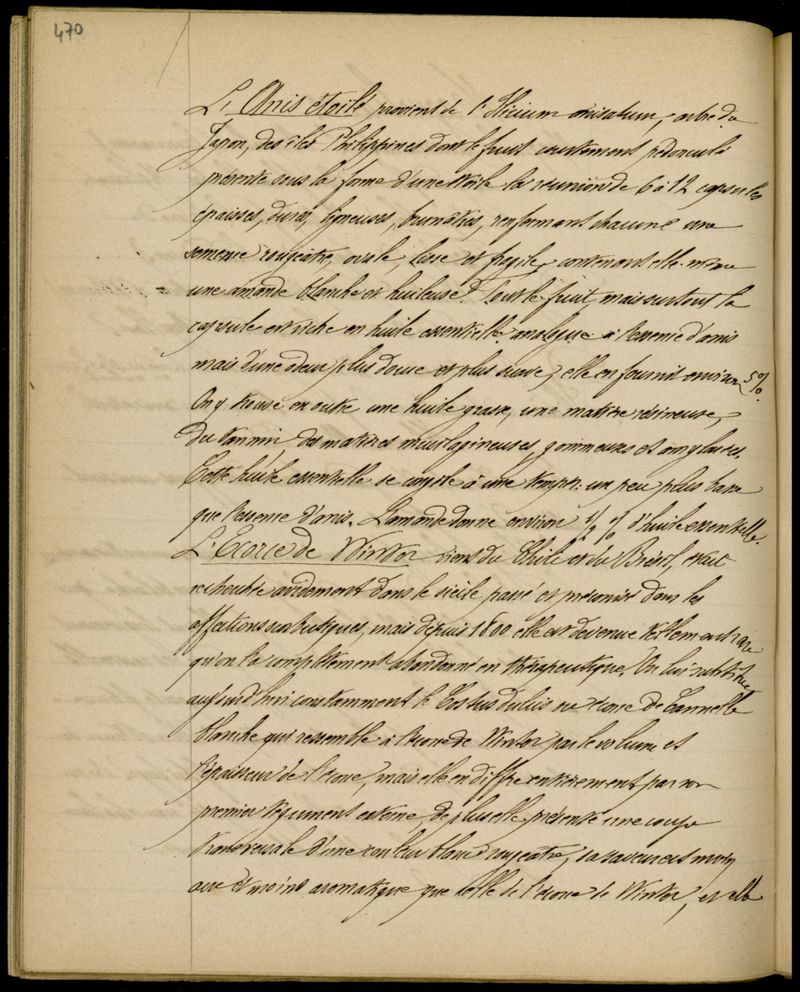 470
L'Anis étoilé provient de l'Ilicium anisatum, arbre du
Japon, des îles Philippines dont le fruit courtement pédonculé
présente sous la forme d'une étoile la réunion de 6 à 12 capsules
épaisses, dures, ligneuses, brunâtres, renfermant chacune une
semence rougeâtre, ovale, lisse et fragile, contenant elle-même
une amande blanche et huileuse. Tout le fruit, mais surtout la
capsule est riche en huile essentielle analogue à l'essence d'anis
mais d'une odeur plus douce et plus suave, elle en fournit environ 5%.
On y trouve en outre une huile grasse, une matière résineuse,
du tannin, des matières mucilagineuses, gommeuses et amylacées.
Cette huile essentielle se congèle à une tempre. un peu plus basse
que l'essence d'anis. L'amande donne environ 1/2 % d'huile essentielle.
L'Ecorce de Winter vient du Chili et du Brésil, était
recherchée avidement dans le siècle passé et préconisée dans les
affections scorbutiques, mais depuis 1800 elle est devenue tellement rare
qu'on l'a complètement abandonné en thérapeutique. On lui substitue
aujourd'hui constamment le Costus dulcis ou écorce de Cannelle
blanche qui ressemble à l'écorce de Winter par le volume et
l'épaisseur de l'écorce, mais elle en diffère entièrement par son
premier tégument externe, de plus elle présente une coupe
transversale d'une couleur blanc rougeâtre, sa saveur est moins
âcre et moins aromatique que celle de l'écorce de Winter, et elle